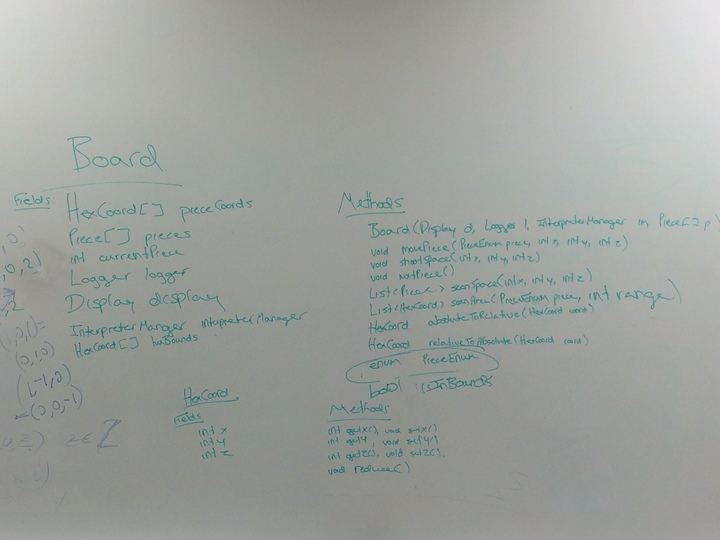 Board
Fields:
HexCoord[] pieceCoords
Piece[] pieces
int currentPiece
Logger logger
Display display
InterpreterManger intepreterManager
HexCoord[]
Methods
Board(Display d, Logger l, InterpreterManager im, Piece[] p)
void movePiece(PieceEnum piece, int x, int y, int z)
void shootSpace(int x, int y, int z)
void waitPiece()
List<Piece> scanSpace(int x, int y, int z)
List<HexCoord> scanArea(PieceEnum piece, int range)
HexCoord absoluteToRelative(HexCoord coord)
HexCoord relativeToAbsolute(HexCoord coord)
enum PieceEnum
bool isInBounds
HexCoord
Fields
int x
int y
int z
Methods
int getX(), void setX()
int getY, void setY()
int getZ(), void setZ().
void reduce()
,0)
,0,2)
(1,0,1)=
(0,1,0)
(1,-1,0)
(0,0,-1)
z∈Z